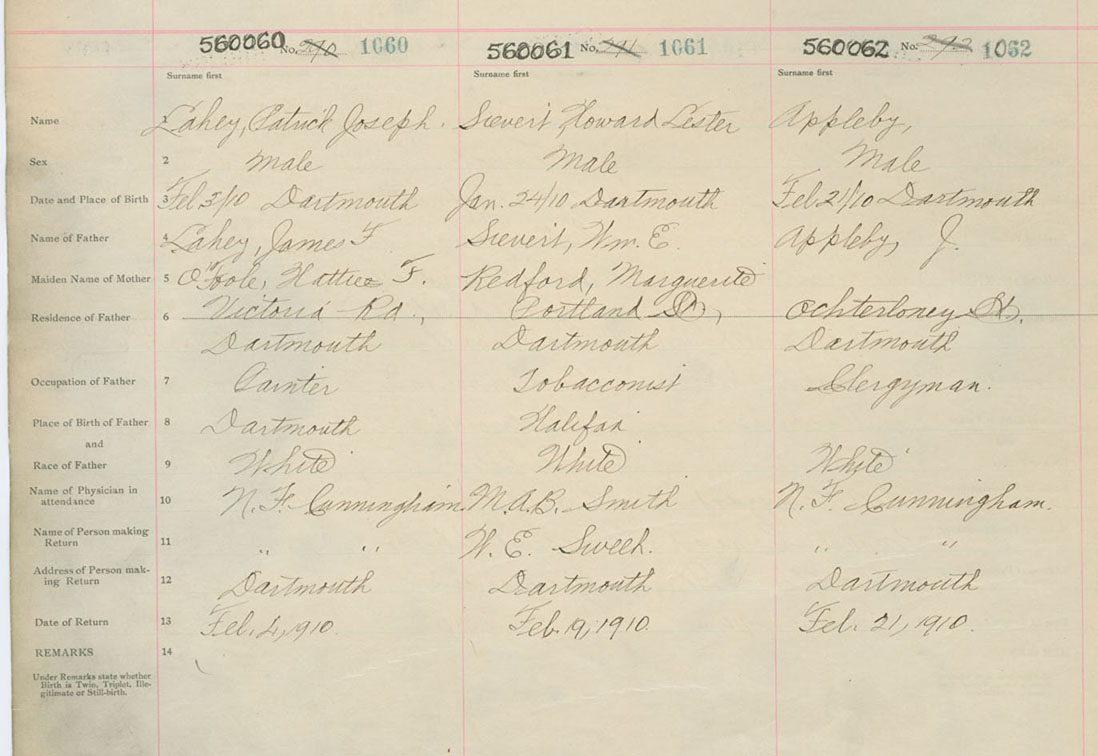 560060 No. 270 1060 560061 No. 271 1061 560062 No. 272 1062
Surname first Surname first Surname first
Name 1 Lahey, Patrick Joseph. Sievert Howard Lester Appleby,
Sex 2 Male Male Male
Date and Place of Birth 3 Feb 3/10 Dartmouth Jan. 24/10 Dartmouth Feb. 21/10 Dartmouth
Name of Father 4 Lahey, James F. Sievert, Wm. E. Appleby, J.
Maiden Name of Mother 5 O'Toole, Hattie F. Redford, Marguerite
Victoria Rd., Portland St., Ochterloney St.
Residence of Father 6
Dartmouth Dartmouth Dartmouth
Occupation of Father 7 Painter Tobacconist Clergyman.
Place of Birth of Father 8 Dartmouth Halifax
and
Race of Father 9 White White White
Name of Physician in
attendance 10 N. F. Cunningham. M.A.B. Smith N. F. Cunningham.
Name of Person making
Return 11 " " W. E. " "
Address of Person mak-
ing Return 12 Dartmouth Dartmouth Dartmouth
Date of Return 13 Feb. 4, 1910. Feb. 9, 1910. Feb. 21, 1910.
REMARKS 14
Under Remarks state whether
Birth is Twin, Triplet, Ille-
gitimate or Still-birth.